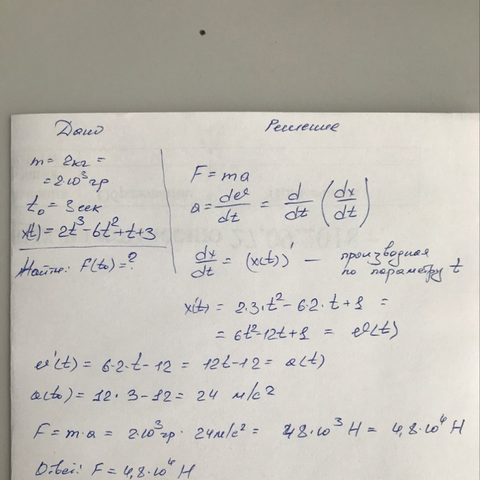 Дано
Решение
m = 2кг =
= 2·10³ гр
t₀ = 3 сек
x(t) = 2t³-6t²+t+3
Найти: F(t₀) = ?
F = ma
a = dv/dt = d/dt (dx/dt)
dx/dt = (x(t))' — производная
по параметру t
x'(t) = 2·3·t² - 6·2·t + 1 =
= 6t² - 12t + 1 = v(t)
v'(t) = 6·2·t - 12 = 12t - 12 = a(t)
a(t₀) = 12·3 - 12 = 24 м/с²
F = m·a = 2·10³гр · 24м/с² = 48·10³ Н = 4,8·10⁴ Н
Ответ: F = 4,8·10⁴ Н